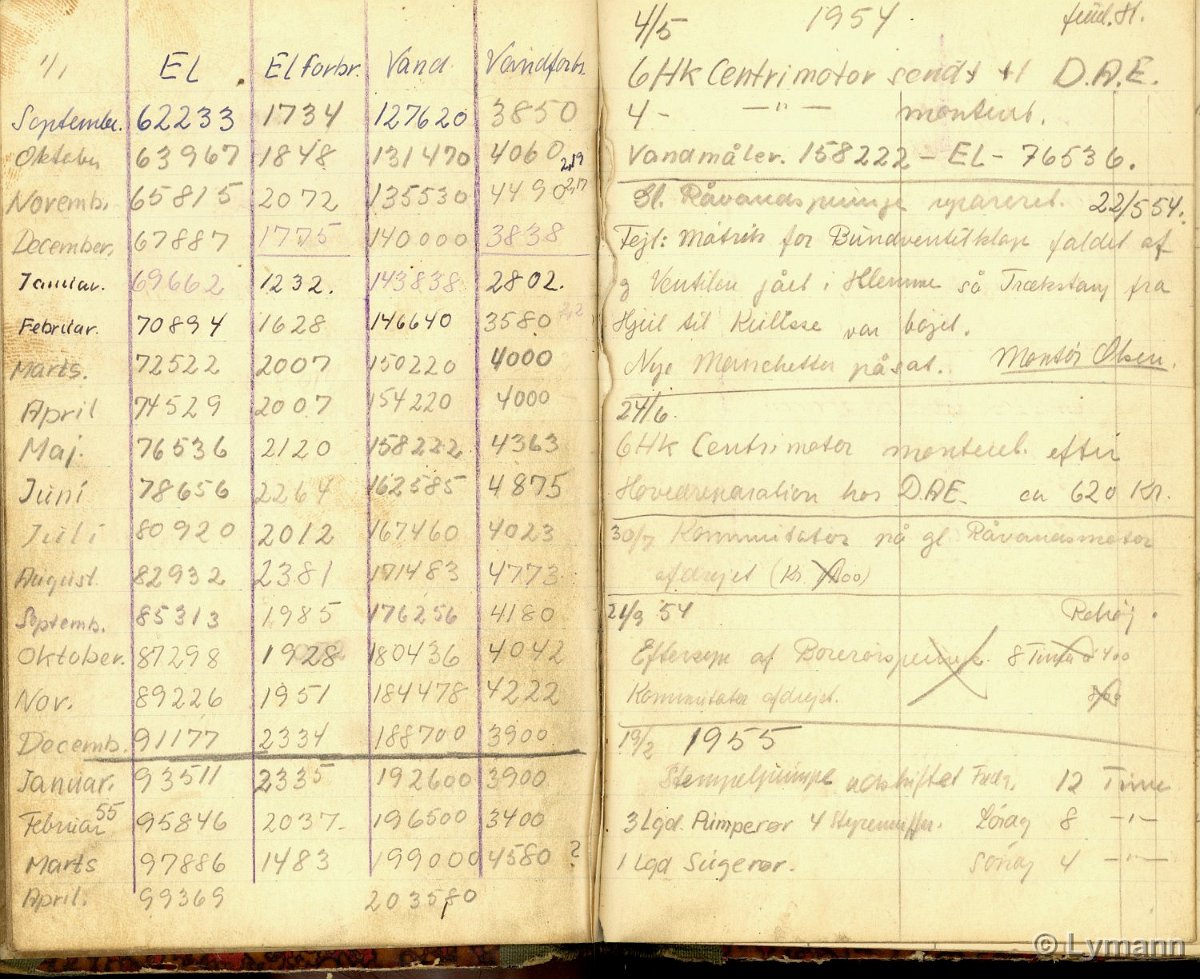 1/1 EL Elforbr. Vand. Vandforb.
September. 62233 1734 127620 3850
Oktober 63967 1848 131470 4060 2,19
Novemb. 65815 2072 135530 4490 2,17
December. 67887 1775 140000 3838
Januar. 69662 1232. 143838 2802.
Februar. 70894 1628 146640 3580 2,2
Marts. 72522 2007 150220 4000
April 74529 2007 154220 4000
Maj. 76536 2120 158222 4363
Juni 78656 2264 162585 4875
Juli 80920 2012 167460 4023
August 82932 2381 171483 4773
Septemb. 85313 1985 176256 4180
Oktober. 87298 1928 180436 4042
Nov. 89226 1951 184478 4222
Decemb. 91177 2334 188700 3900
Januar. 93511 2335 192600 3900
Februar 55 95846 2037. 196500 3400
Marts 97886 1483 199000 4580 ?
April. 99369 203580
4/5 1954
6 Hk Centrimotor sendt til D.A.E.
4 - — " — monteret.
Vandmåler. 158222 - EL - 76536.
Gl. Råvandspumpe repareret. 22/5 54.
Fejl: Møtrik for Bundventilklap faldet af
og Ventilen gået i Klemme så Trækstang fra
Hjul til Kulisse var bøjet.
Nye Manchetter påsat. Montør Olsen.
24/6.
6 Hk Centrimotor monteret efter
Hovedreparation hos D.A.E. ca 620 Kr.
30/7 Kommutator på gl Råvandsmotor
afdrejet (Kr.
21/9 '54
Eftersyn af 8 Timer á 400
Kommutator afdrejet.
19/2 1955
Stempelpumpe udskiftet Fredr. 12 Time
3 Lgd. Pumperør 4 Styremuffer. Lørdag 8 — " —
1 Lgd Sugerør. Søndag 4 — " —
© Lymann